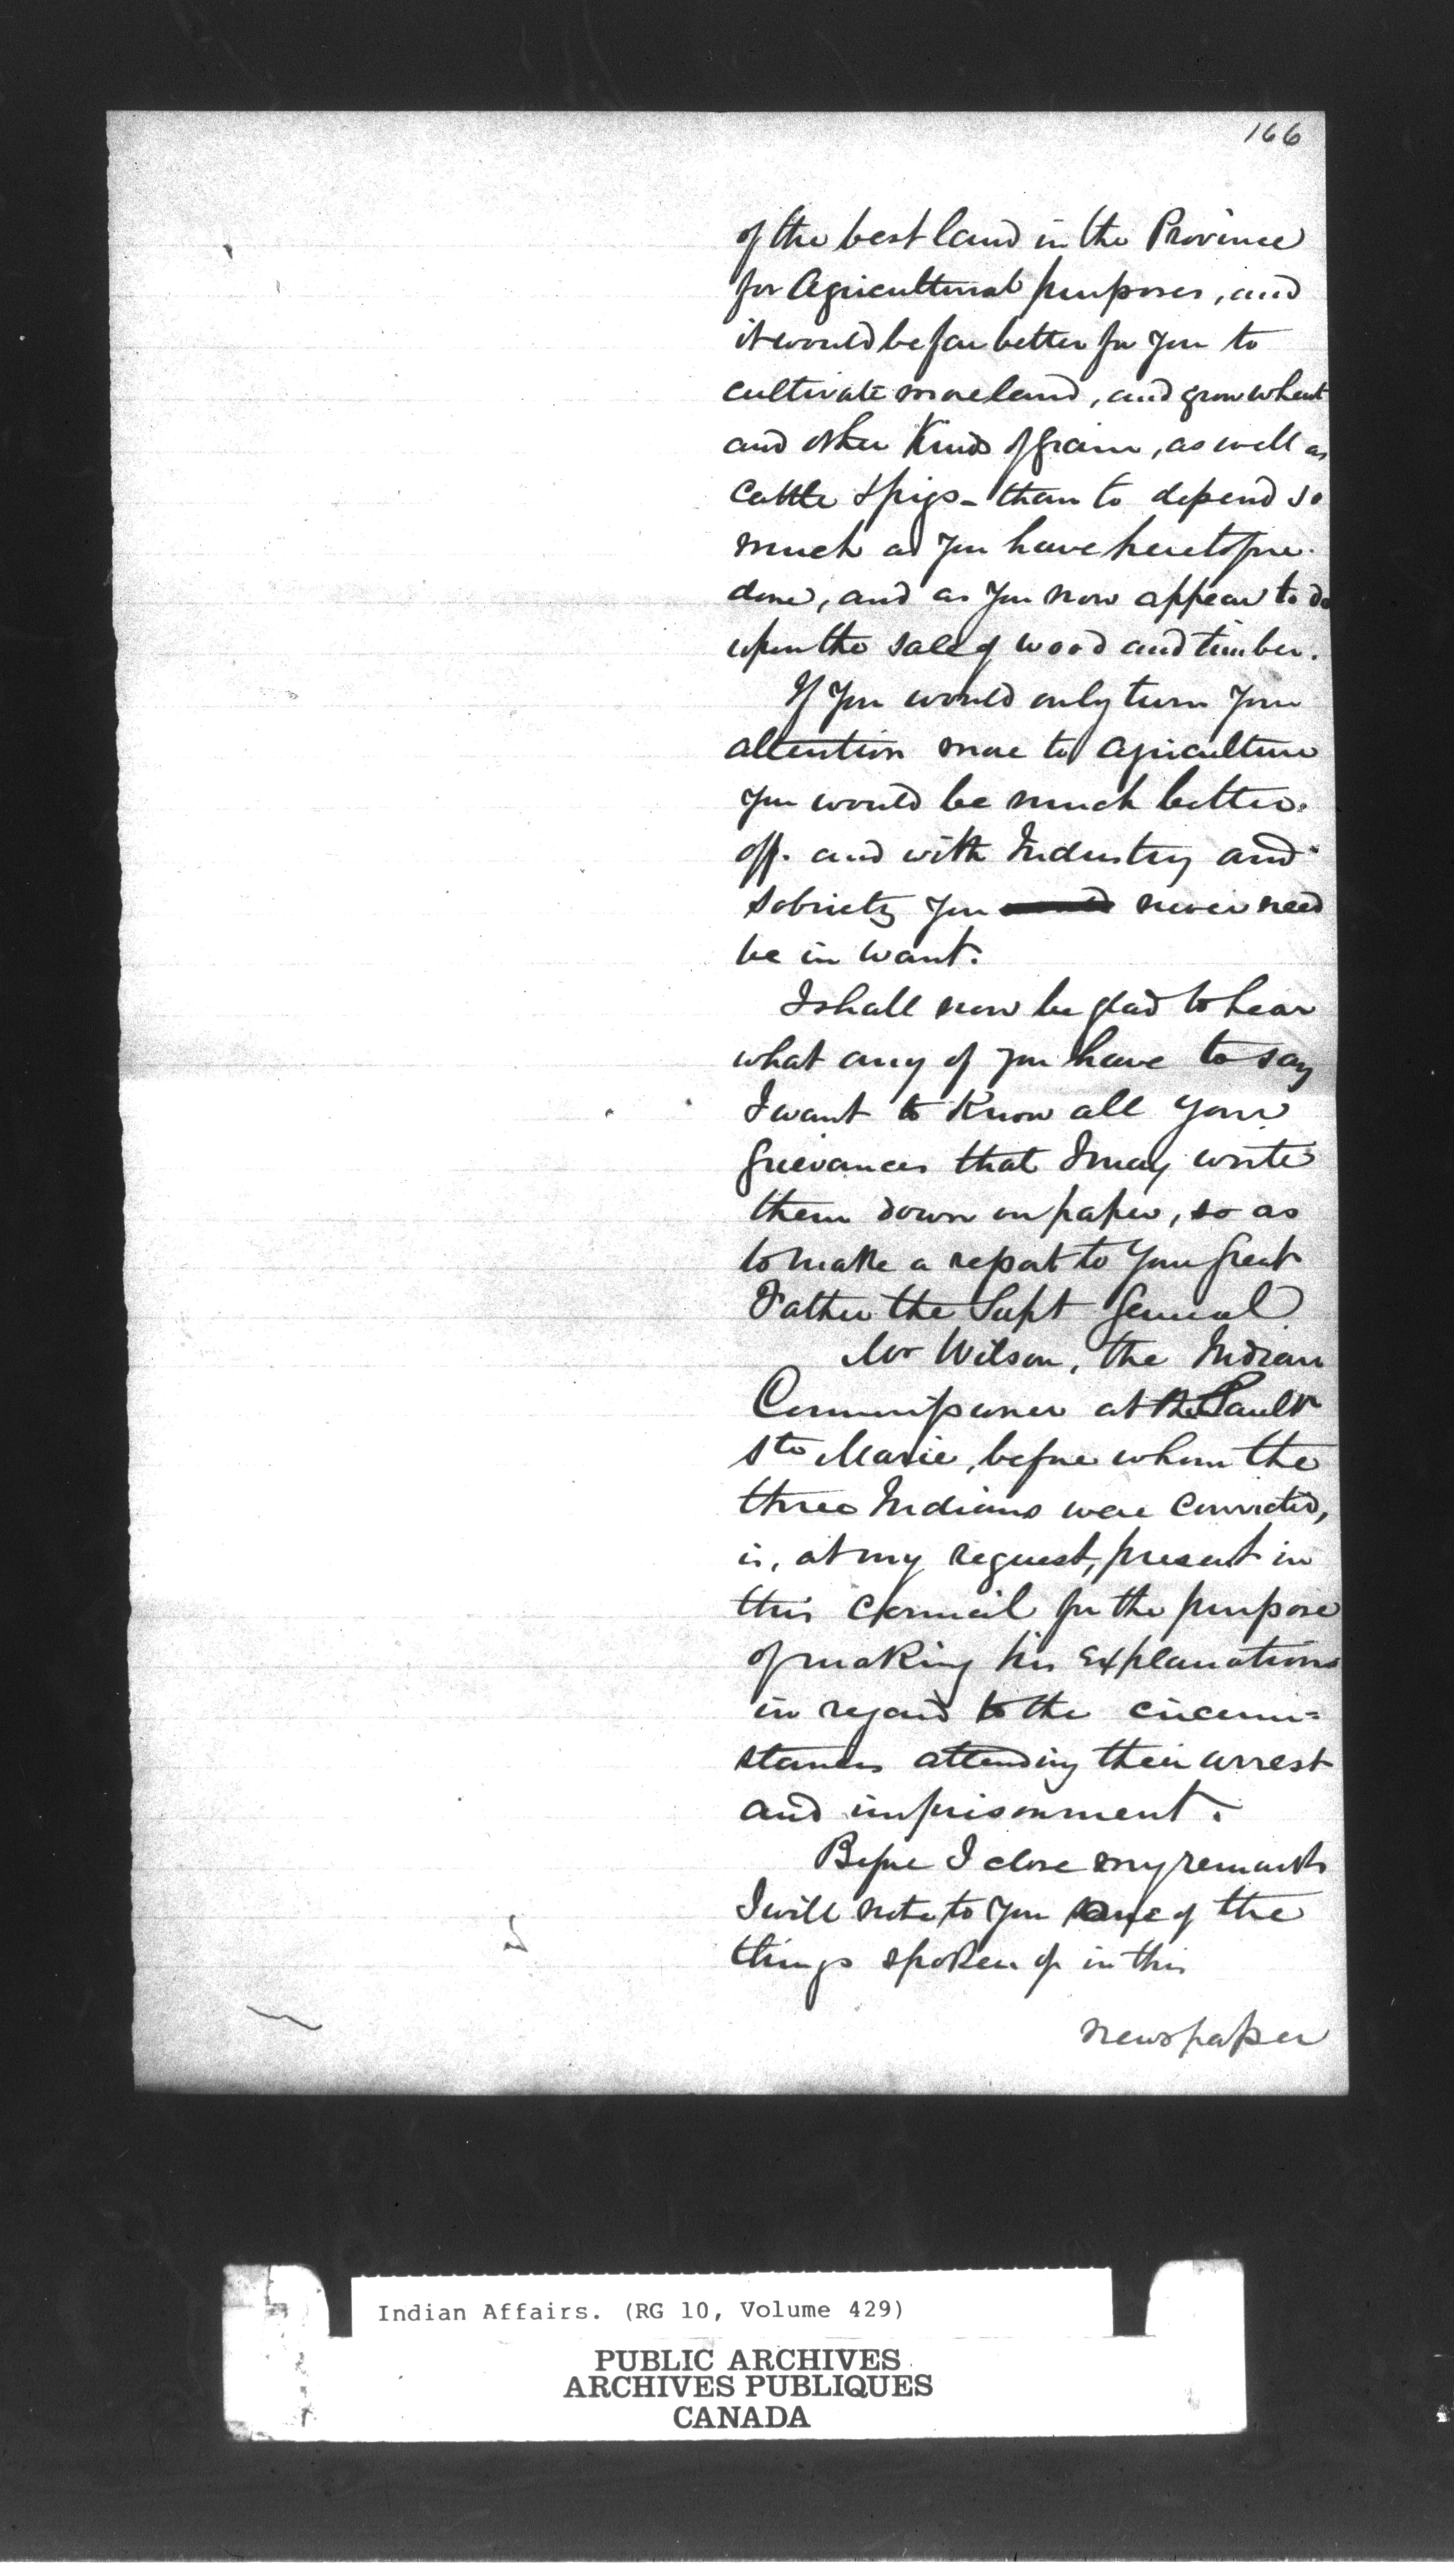 166
of the best land in the Province
for Agricultural purposes, and
it would be far better for you to
cultivate more land, and grow wheat
and other Kinds of grain, as well as
cattle & pigs - than to depend so
much as you have heretofore
done, and as you now appear to do
upon the sale of wood and timber.
If you would only turn your
attention more to agriculture
you would be much better
off. and with Industry and
sobriety you never need
be in want.
I shall now be glad to hear
what any of you have to say
I want to Know all your
grievances that I may write
them down on paper, so as
to make a report to your Great
Father the Supt General
Mr Wilson, the Indian
Commissioner at the Sault
Ste Marie, before whom the
three Indians were convicted,
is, at my request, present in
this Council for the purpose
of making his explanations
in regard to the circum=
stances attending their arrest
and imprisonment.
Before I close my remarks
I will note to you some of the
things spoken of in this
newspaper
Indian Affairs. (RG 10, Volume 429)
PUBLIC ARCHIVES
ARCHIVES PUBLIQUES
CANADA